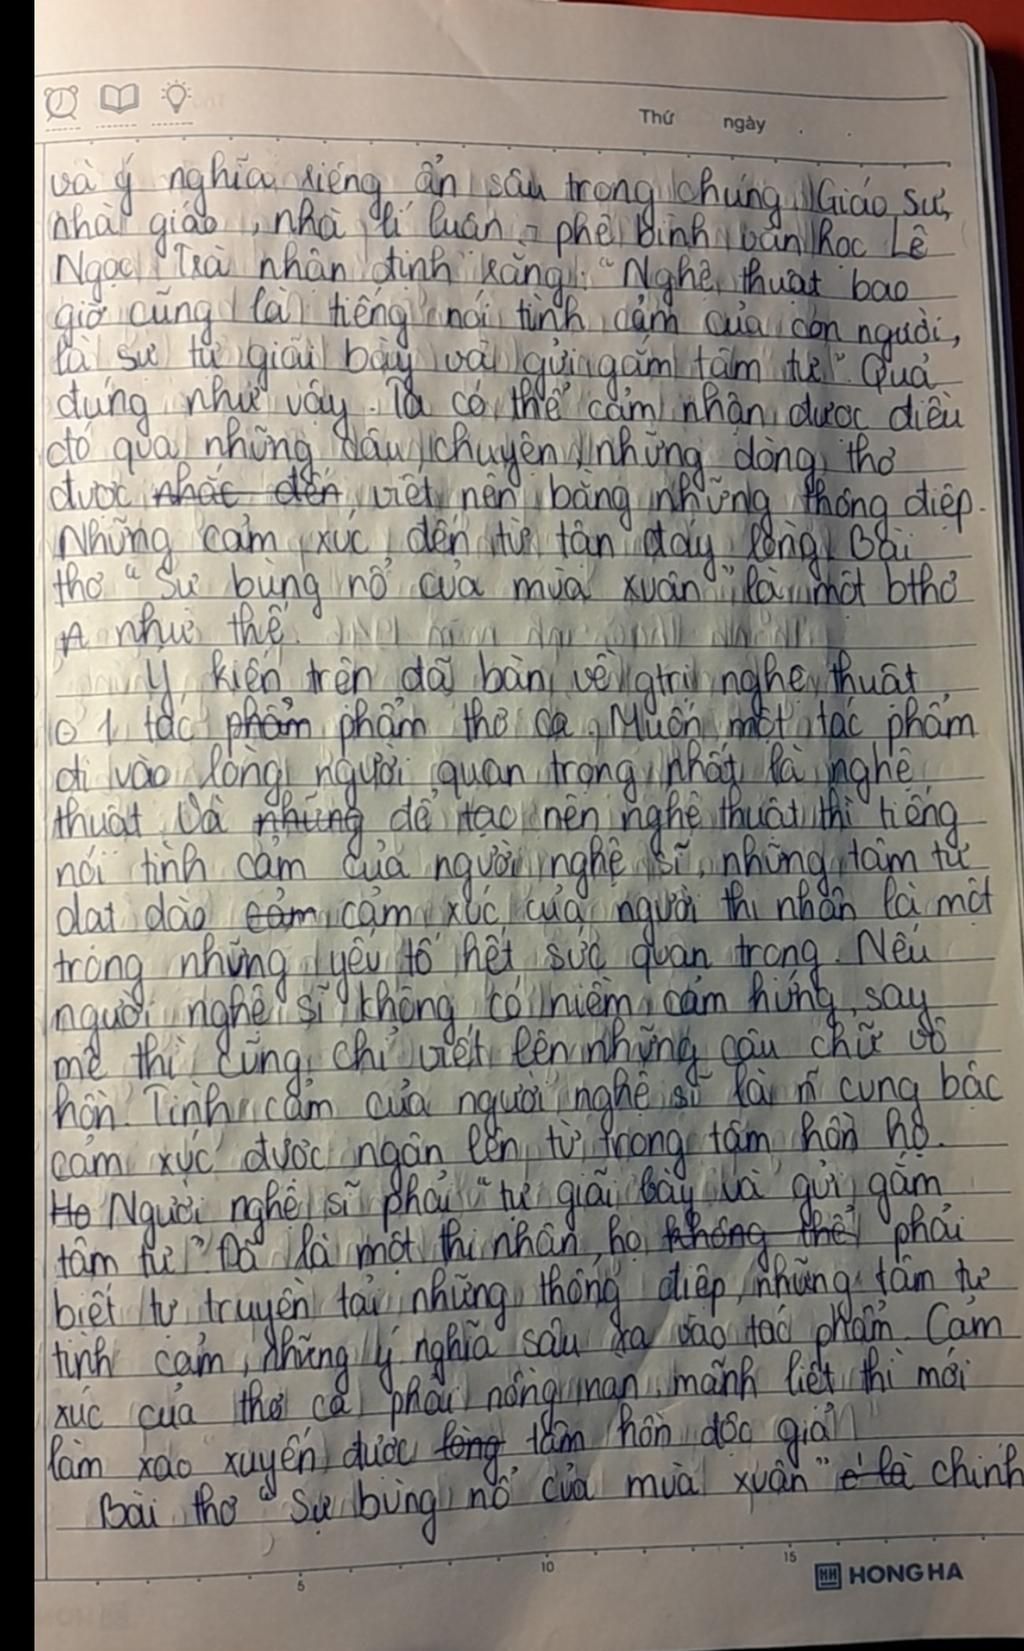 Thứ ngày
và ý nghĩa riêng ẩn sâu trong chúng. Giáo sư,
nhà giáo, nhà lí luận - phê bình văn học Lê
Ngọc Trà nhận định rằng: "Nghệ thuật bao
giờ cũng là tiếng nói tình cảm của con người,
là sự tự giãi bày và gửi gắm tâm tư". Quả
đúng như vậy. Ta có thể cảm nhận được điều
đó qua những câu chuyện, những dòng thơ
được nhắc đến, viết nên bằng những thông điệp.
Những cảm xúc đến từ tận đáy lòng. Bài
thơ "Sự bùng nổ của mùa xuân" là một bthơ
như thế.
Ý kiến trên đã bàn về gtrị nghệ thuật
ở 1 tác phẩm phẩm thơ ca. Muốn một tác phẩm
đi vào lòng người quan trọng nhất là nghệ
thuật. Và những để tạo nên nghệ thuật thì tiếng
nói tình cảm của người nghệ sĩ, những tâm tư
dạt dào cảm cảm xúc của người thi nhân là một
trong những yếu tố hết sức quan trọng. Nếu
người nghệ sĩ không có niềm cảm hứng, say
mê thì cũng chỉ viết lên những câu chữ vô
hồn. Tình cảm của người nghệ sĩ là n~ cung bậc
cảm xúc được ngân lên từ trong tâm hồn họ.
Họ Người nghệ sĩ phải "tự giãi bày và gửi gắm
tâm tư". Đã là một thi nhân, họ không thể phải
biết tự truyền tải những thông điệp, những tâm tư
tình cảm, những ý nghĩa sâu xa vào tác phẩm. Cảm
xúc của thơ ca phải nồng nàn, mãnh liệt thì mới
làm xao xuyến được lòng tâm hồn độc giả.
Bài thơ "Sự bùng nổ của mùa xuân" là chính
5 10 15
HONG HA